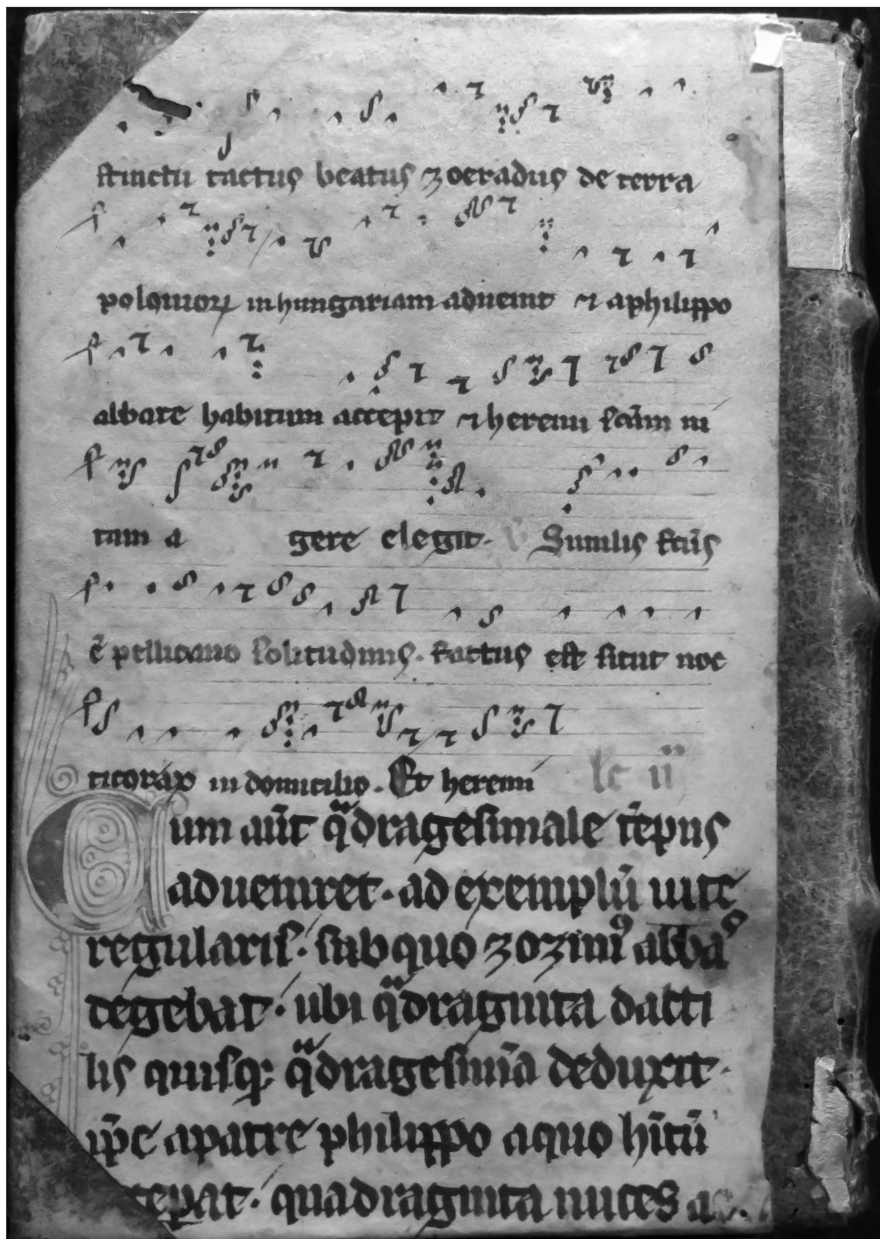 stinctu tactus beatus zoeradus de terra
poloniorꝝ in hungariam aduenit ⁊ a philippo
abbate habitum accepit ⁊ heremi sc̄am ui
tam a gere elegit. V̄ Similis fc̄us
ē pellicano solitudinis. factus est sicut noc
ticorax in domicilio. Et heremi lc̄ ii
Cum aūt qͣdragesimale t̄epus
adueniret. ad exemplū uite
regularis. sub quo zozimꝰ abbas
degebat. ubi qͣdraginta dacti
lis quisqꝫ qͣdragesimā deduxit.
ip̄e a patre philippo a quo hītū
ceperat. quadraginta nuces